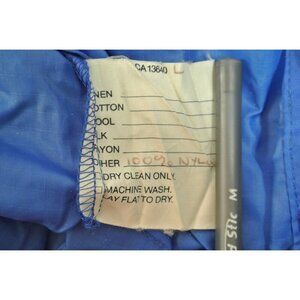 CA 13640 L
NEN
OTTON
OOL
LK
AYON
HER 100% NYL
DRY CLEAN ONLY.
MACHINE WASH.
AY FLAT TO DRY.
d Stic M